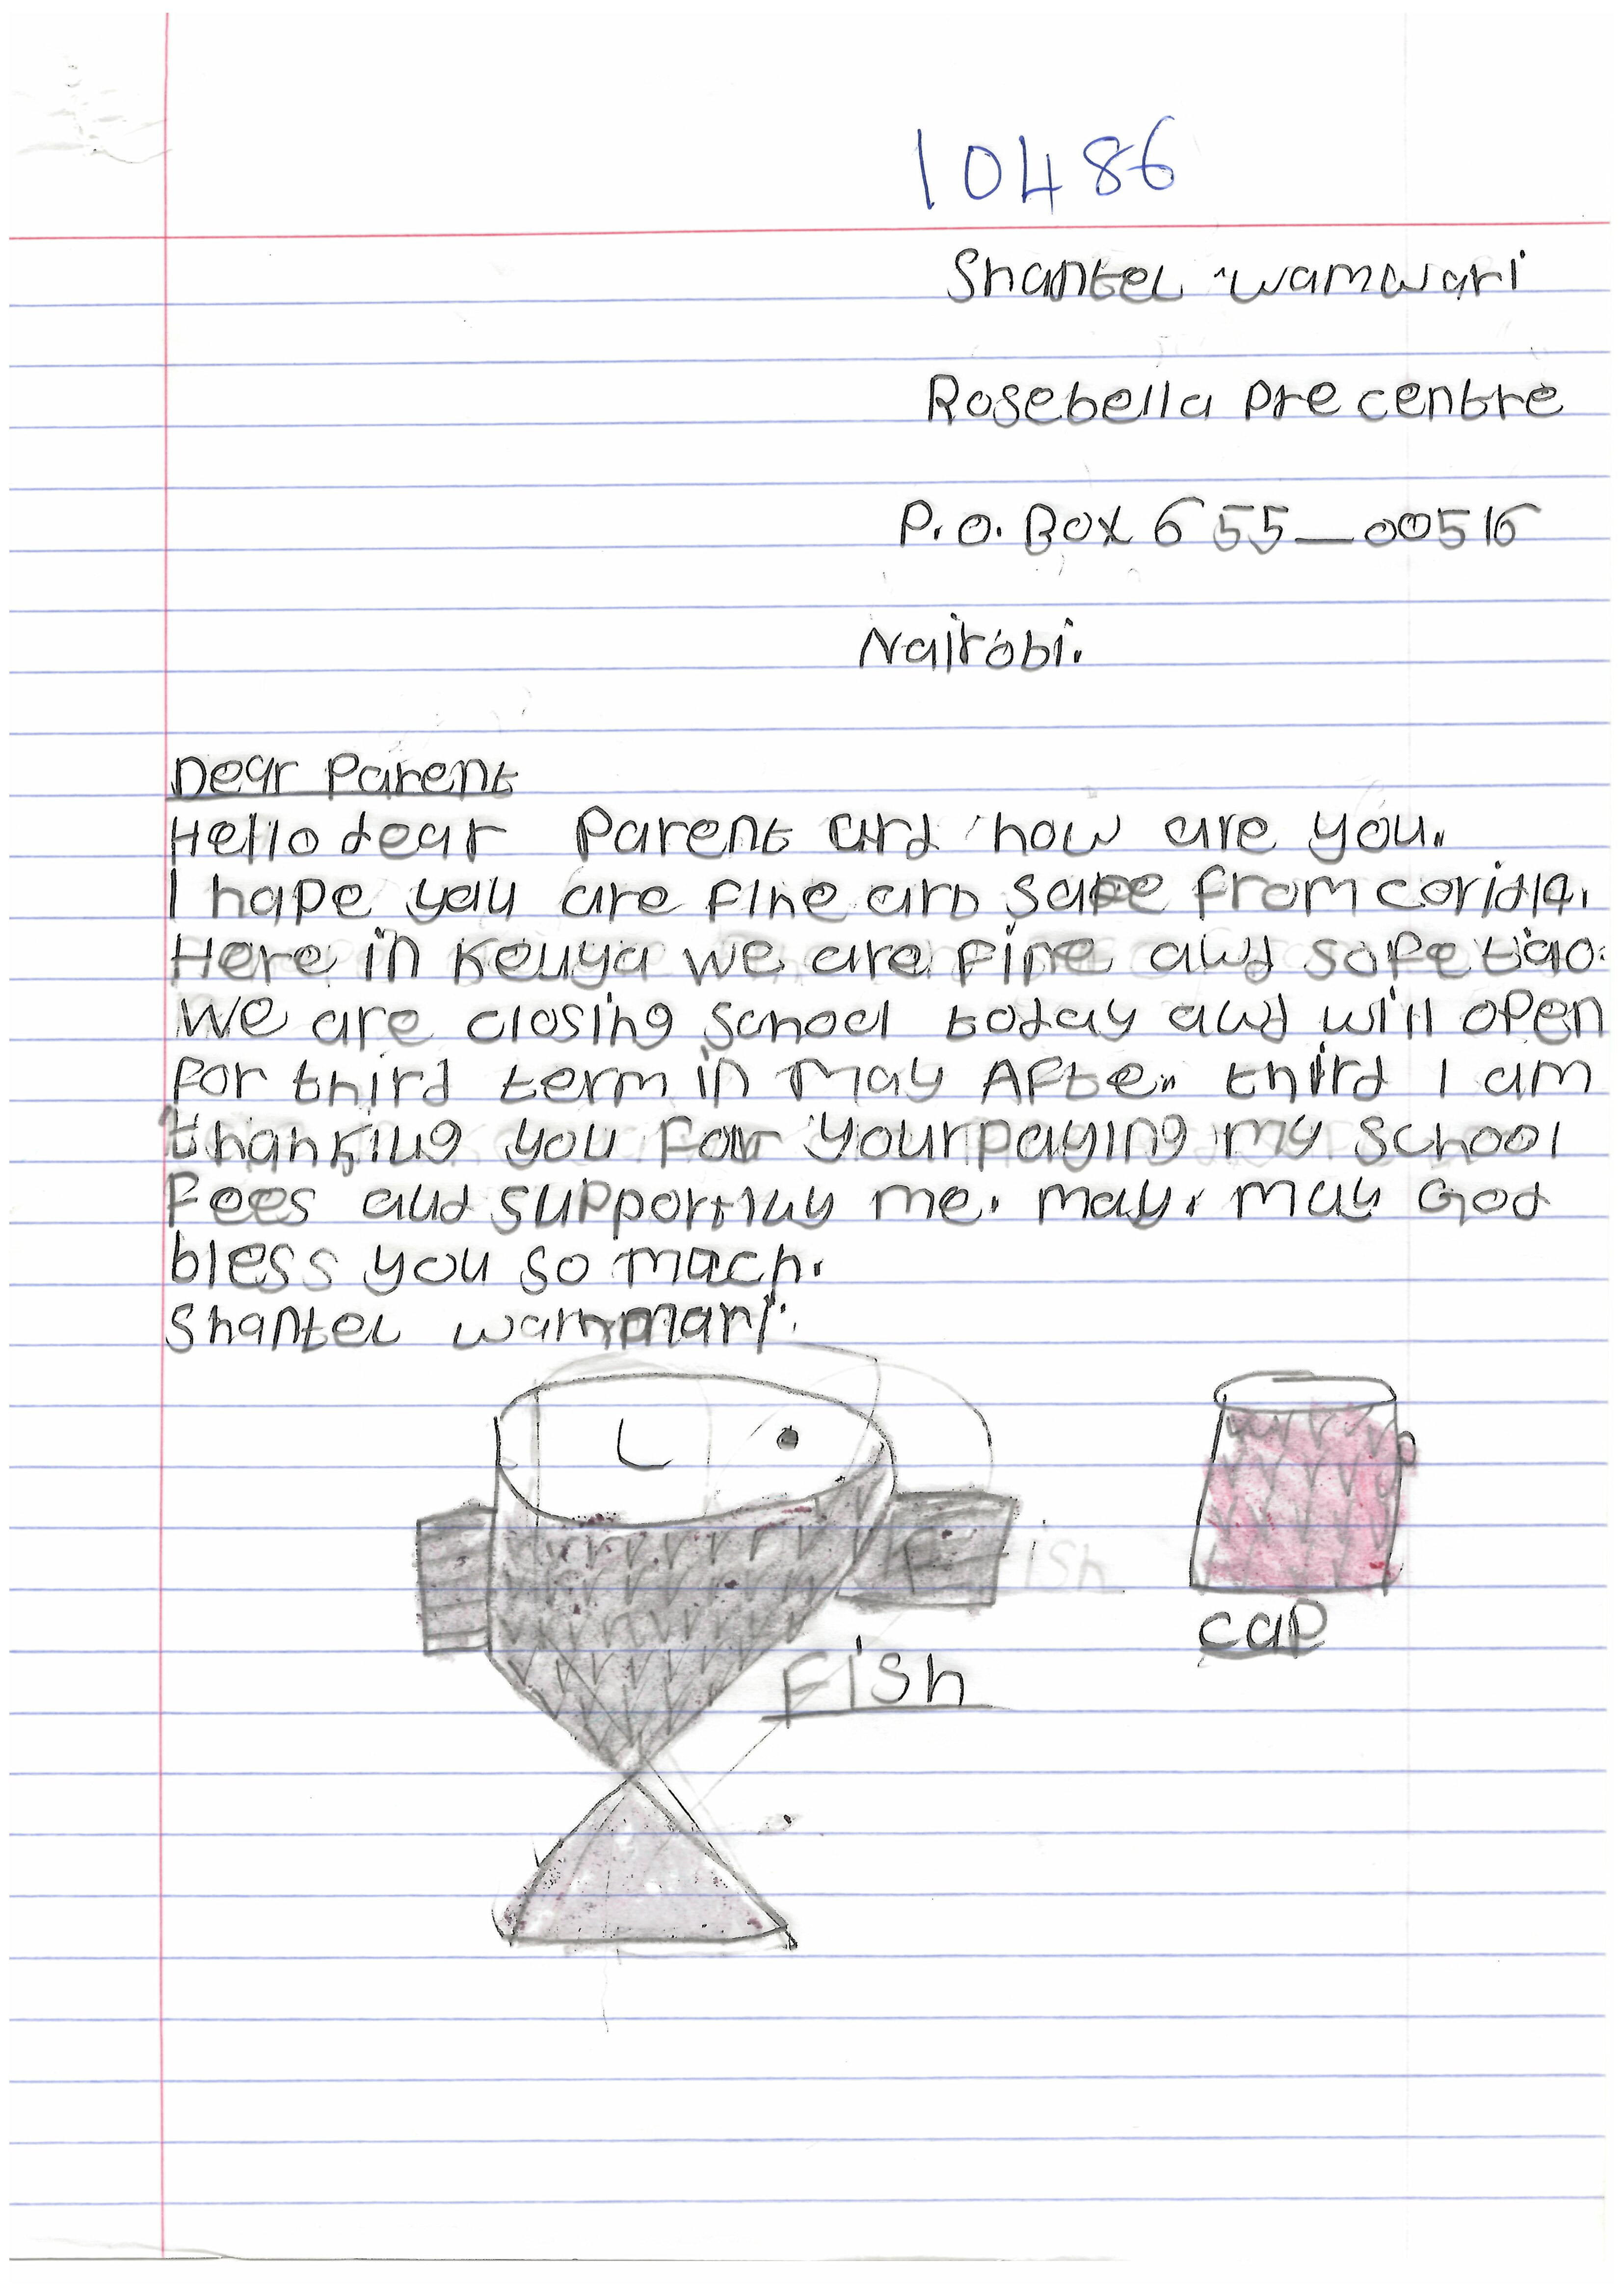 10486
Shantel wamwari
Rosebella pre centre
P.O. Box 655_00516
Nairobi.
Dear Parent
Hello dear Parent and how are you.
I hape yau are fine and safe from corid19.
Here in Kenya we are fine and safe too.
We are closing school today and will open
for third term in May After third I am
thanking you for your paying my school
Fees and supporting me. may. may God
bless you so mach.
Shantel wammari.
Fish
Fish
cap